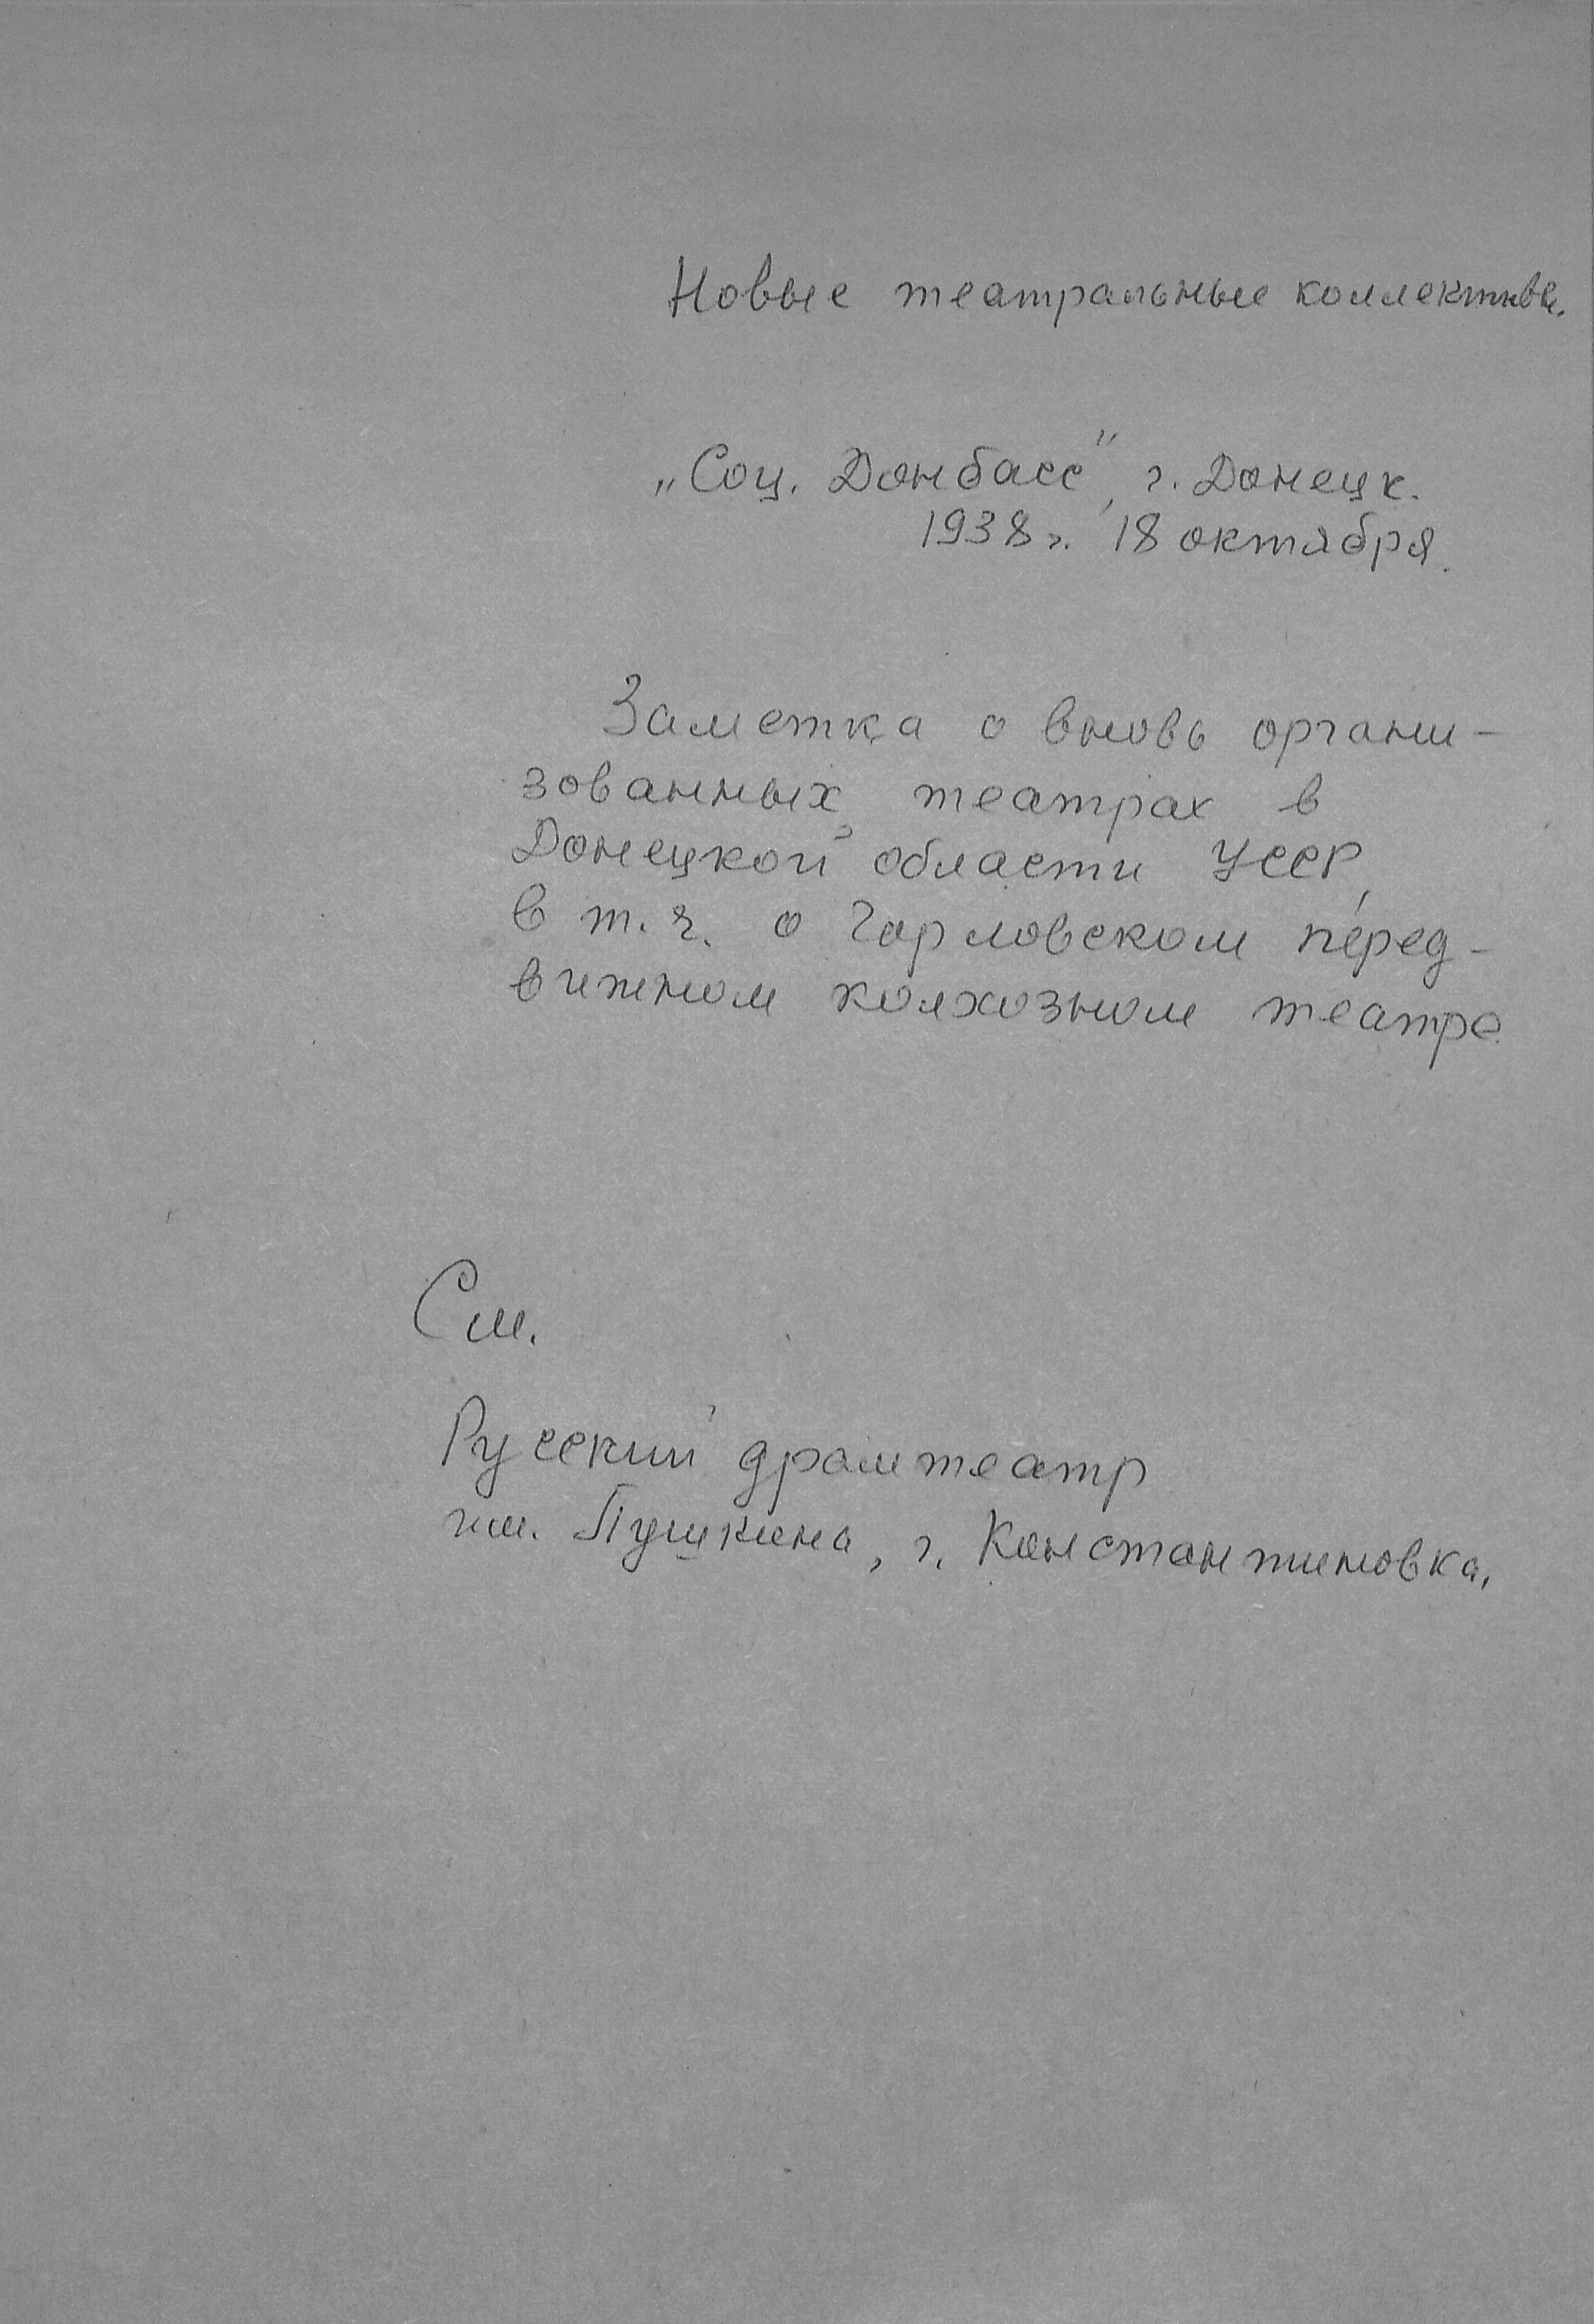 Новые театральные коллективы.
„Соц. Донбасс", г. Донецк.
1938 г. 18 октября.
Заметка о вновь органи-
зованных театрах в
Донецкой области УССР,
в т. ч. о Горловском перед-
вижном колхозном театре.
См.
Русский драмтеатр
им. Пушкина, г. Константиновка.